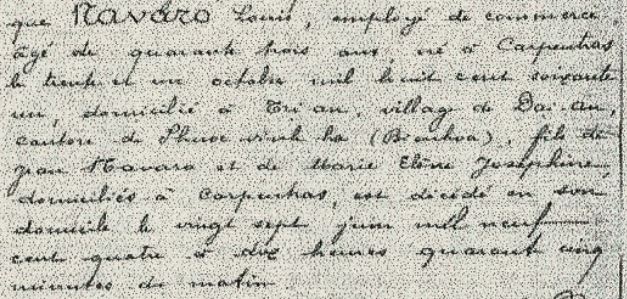 que Navaro Louis, employé de commerce
âgé de quarante trois ans, né à Carpentras
le trente et un octobre mil huit cent soixante
un, domicilié à Tri an, village de Dai-an,
canton de Phuoc vinh ha (Bienhoa), fils de
jean Navaro et de Marie Elène Joséphine
domiciliés à Carpentras, est décédé en son
domicile le vingt sept juin mil neuf
cent quatre à dix heures quarant cinq
minutes du matin.